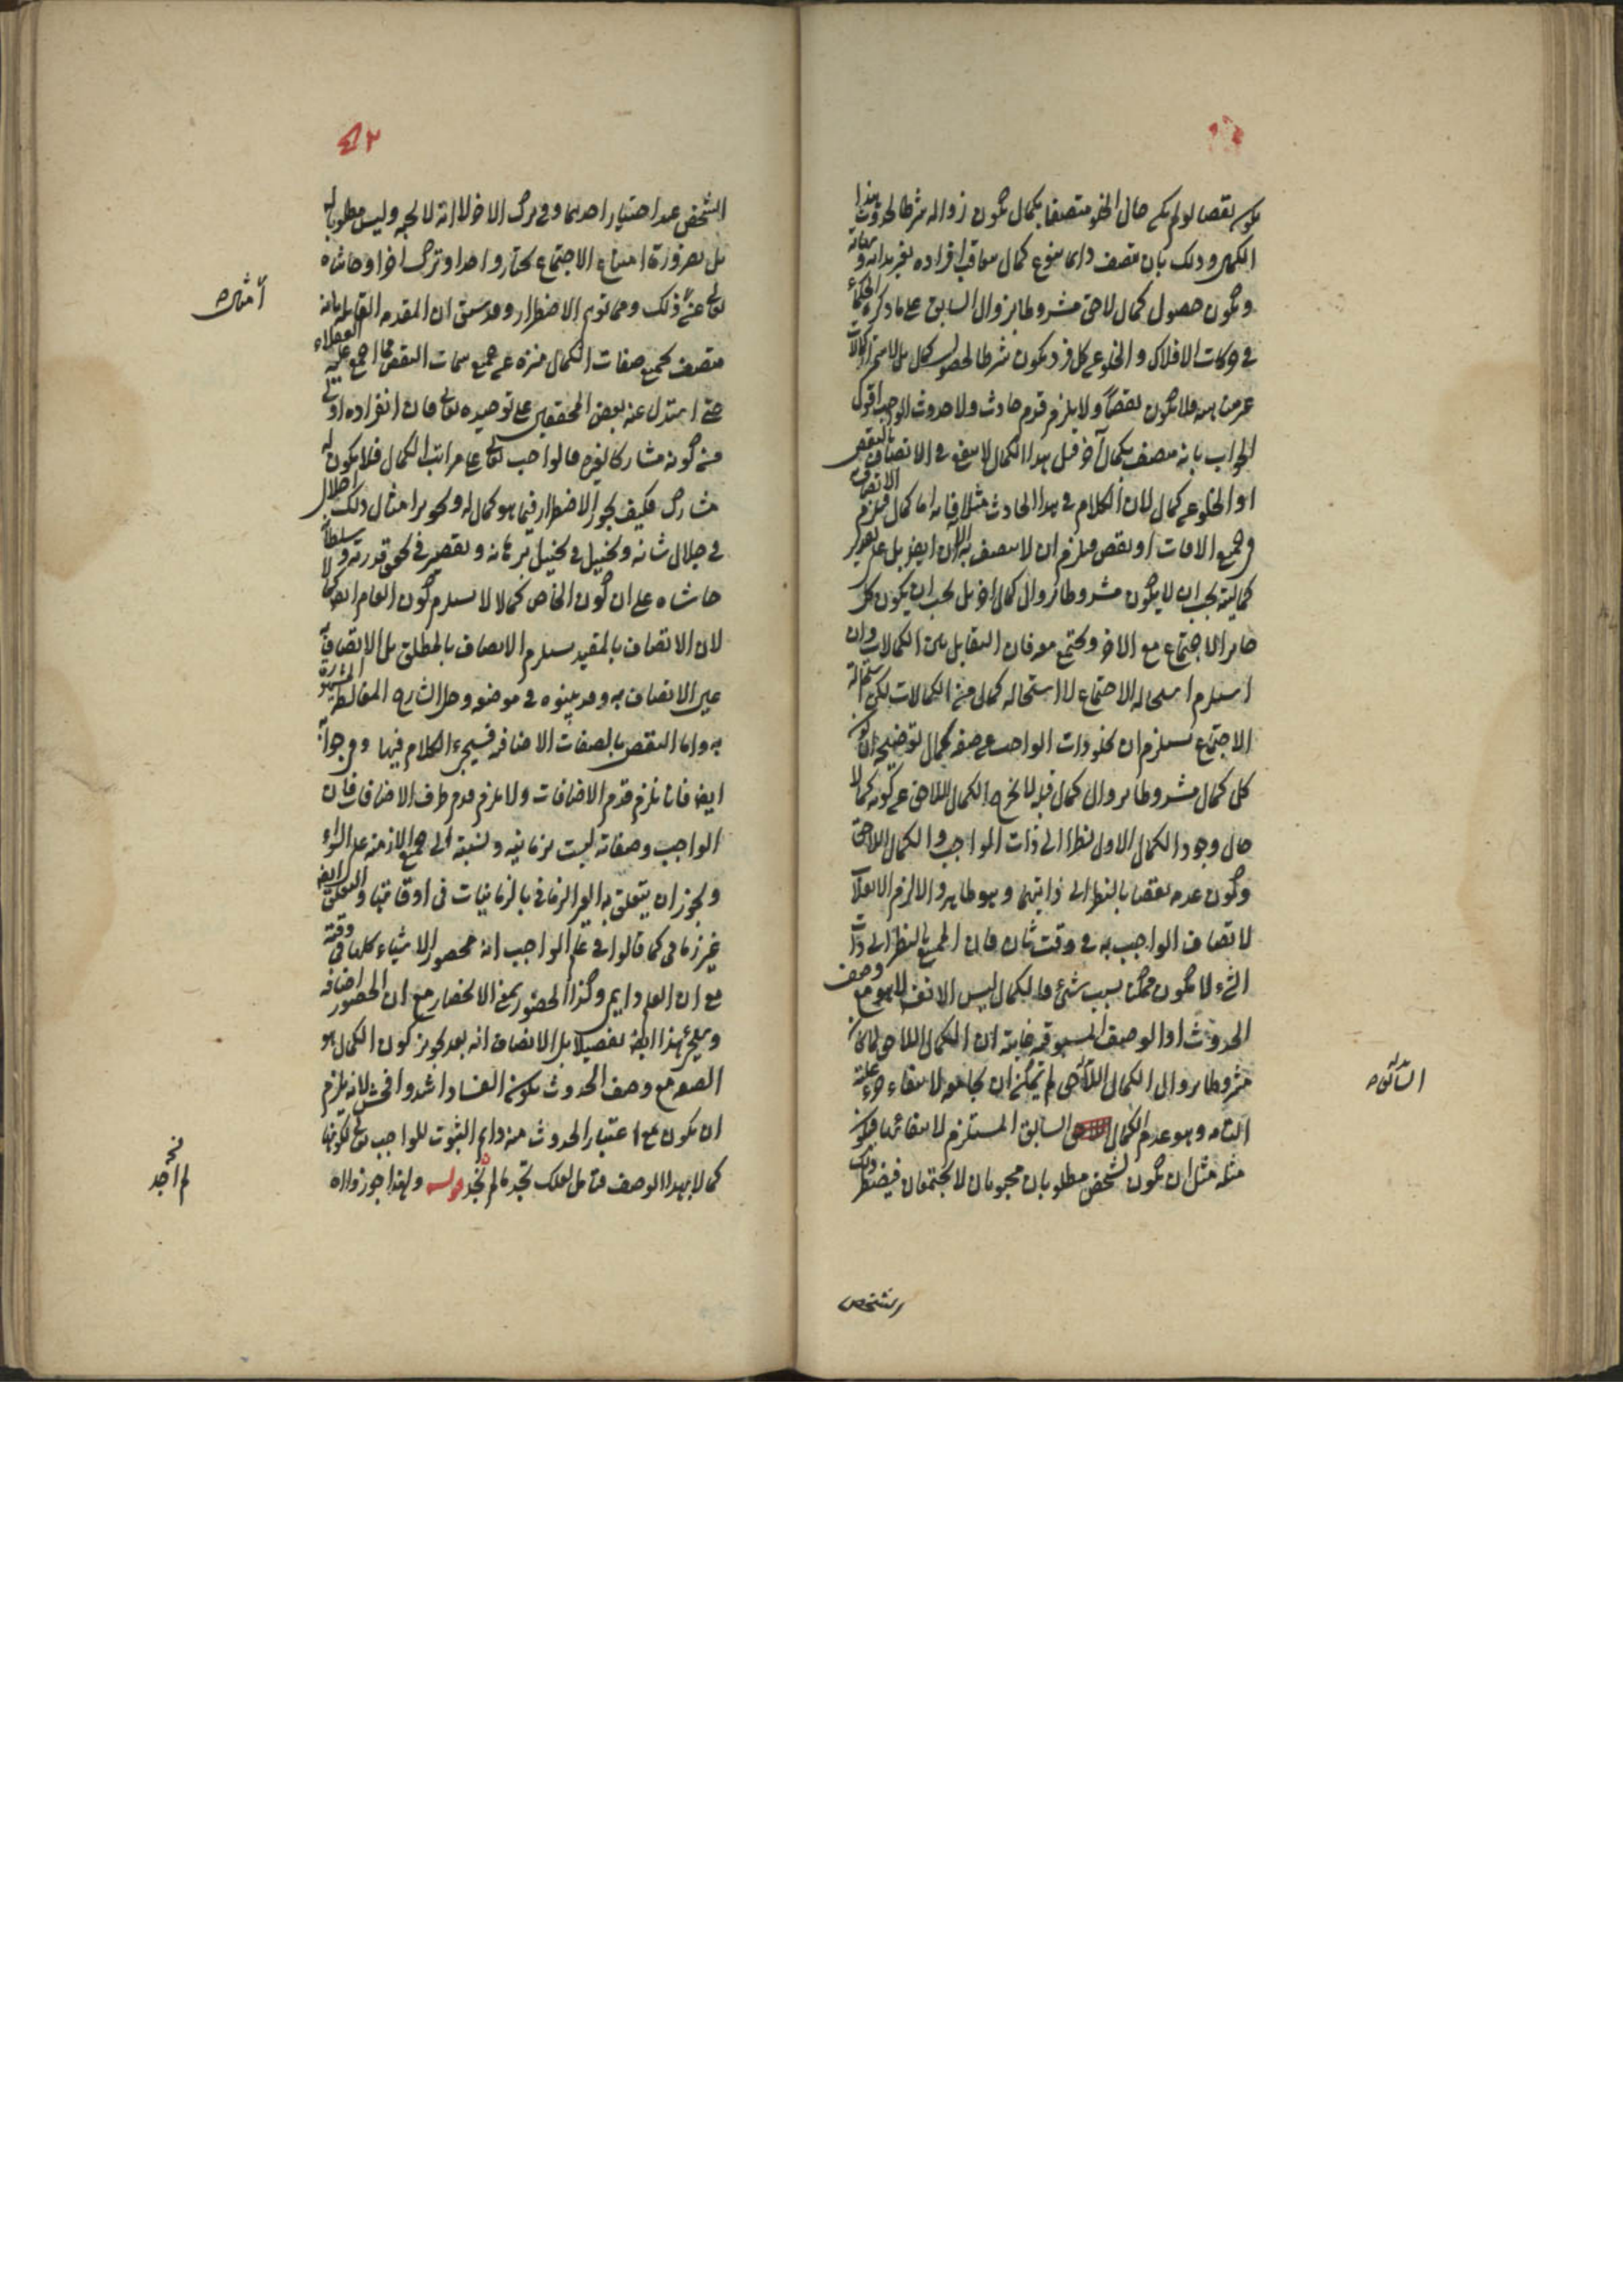 يكون نقصا لو لم يكن حال الخلو متصفا بكمال يكون زواله شرطا لحدوث هذا
الكمال وذلك بان يتصف دائما بنوع كمال يتعاقب افراده بغير بداية ونهاية
ويكون حصول كمال لاحق مشروطا بزوال السابق على ما ذكره الحكماء
في حركات الافلاك والخلو عن كل فرد يكون شرطا لحصول كمال بل لاستمرار كمالات
غير متناهية فلا يكون نقصا ولا يلزم قدم حادث ولا حدوث الواجب اقول
الجواب بانه متصف بكمال آخر قبل هذا الكمال لا ينفع في الاتصاف بالنقص
او الخلو عن كمال لان الكلام في هذا الحادث مثلا فانه اما كمال فيلزم الاتصاف
في جميع الاوقات او نقص فيلزم ان لا يتصف به الآن ايضا بل على تقدير
كماليته يجب ان لا يكون مشروطا بزوال كمال آخر بل يجب ان يكون كل
جائز الاجتماع مع الاخر ويجتمع معه فان التقابل بين الكمالات وان
استلزم استحالة الاجتماع لا استحالة كمال من الكمالات لكن استحالة
الاجتماع يستلزم ان يخلو ذات الواجب عن صفة كمال توضيحه ان كون
كل كمال مشروطا بزوال كمال قبله لا يخرج الكمال اللاحق عن كونه كمالا
حال وجود الكمال الاول نظرا الى ذات الواجب والكمال اللاحق
وكون عدمه نقصا بالنظر الى ذاتيهما وهو ظاهر والا لزم الانقلاب
لاتصاف الواجب به في وقت ثان فان الممتنع بالنظر الى ذات
الشيء لا يكون ممكنا بسبب شيء والكمال ليس الا نفسه لا هو مع وصف
الحدوث او الوصف المسبوقية غايته ان الكمال اللاحق لما كان
مشروطا بزوال الكمال اللاحق لم يمكن ان يجامعه لانتفاء جزء علته
التامة وهو عدم الكمال السابق المستلزم لانتفائها فيكون
مثله مثل ان يكون لشخص مطلوبان محبوبان لا يجتمعان فيضطر ذلك
السابق ه
الشخص
٤٢
الشخص عند اختيار احدهما وفي ترك الاخر لا انه لا يحبه وليس مطلوبا له
بل بضرورة امتناع الاجتماع يختار واحدا ويترك آخر او حاشاه
تعالى عن ذلك ومما توهم الاضطرار وقد سبق ان المقدمة القائلة بانه
متصف بجميع صفات الكمال منزه عن جميع سمات النقص مما اجمع عليه العقلاء
حتى استدل عنه بعض المحققين على توحيده تعالى فان انفراده اولى
من كونه مشاركا لغيره فالواجب تعالى على مراتب الكمال فلا يكون له
مشارك فكيف يجوز الاضطرار فيما هو كمال له وتجويز امثال ذلك اخلال
في جلال شانه وتخييل في تخييل برهانه وتقصير في حق قدرته وسلطانه
حاشاه على ان كون الخاص كمالا لا يستلزم كون العام ايضا كمالا
لان الاتصاف بالمقيد يستلزم الاتصاف بالمطلق بل الاتصاف به
عين الاتصاف به وقد بينوه في موضعه وحل الشارح المغالطة المشهورة
به واما النقض بالصفات الاضافية فسيجيء الكلام فيها وفي جوابه
ايضا فانا نلتزم قدم الاضافات ولا يلزم قدم طرف الاضافات فان
الواجب وصفاته ليست بزمانية ونسبته الى جميع الازمنة على السواء
ويجوز ان يتعلق به الغير الزماني بالزمانيات في اوقاتها والتعلق ايضا
غير زماني كما قالوا في علم الواجب انه محضور الاشياء كلها في وقته
مع ان العلم دائم وكذا الحضور بمعنى الانحصار مع ان الحضور اضافة
وسيجيء هذا ايضا تفصيلا بل الانصاف انه بعد تجويز كون الكمال هو
الصفة مع وصف الحدوث يكون الفساد اشد وافحش لانه يلزم
ان يكون مع اعتبار الحدوث منه دائم الثبوت للواجب تعالى لكونها
كمالا بهذا الوصف فتامل لعلك تجد ما لم نجد قوله ولهذا جوز زواله
امثاله
نخـ
لم اجد